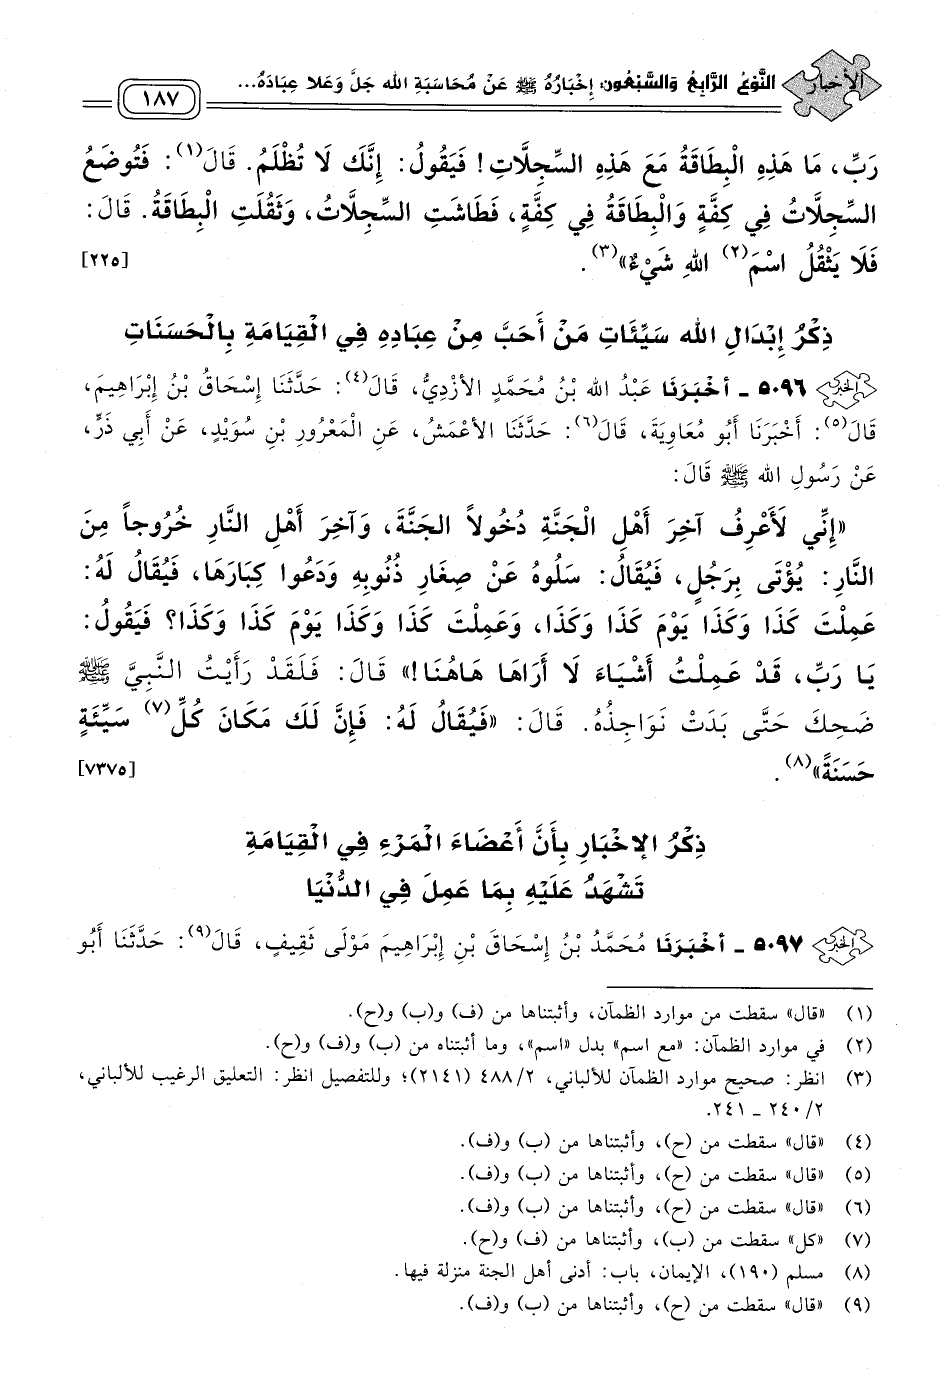 الأخبار
النَّوْعُ الرَّابِعُ وَالسَّبْعُون: إِخْبَارُهُ ﷺ عَنْ مُحَاسَبَةِ الله جَلَّ وَعَلا عِبَادَهُ...
١٨٧
رَبِّ، مَا هَذِهِ الْبِطَاقَةُ مَعَ هَذِهِ السِّجِلَّاتِ! فَيَقُولُ: إِنَّكَ لَا تُظْلَمُ. قَالَ(١): فَتُوضَعُ
السِّجِلَّاتُ فِي كِفَّةٍ وَالْبِطَاقَةُ فِي كِفَّةٍ، فَطَاشَتِ السِّجِلَّاتُ، وَثَقُلَتِ الْبِطَاقَةُ. قَالَ:
فَلَا يَثْقُلُ اسْمَ(٢) اللهِ شَيْءٌ»(٣). [٢٢٥]
ذِكْرُ إِبْدَالِ الله سَيِّئَاتِ مَنْ أَحَبَّ مِنْ عِبَادِهِ فِي الْقِيَامَةِ بِالْحَسَنَاتِ
الخبر ٥٠٩٦ ـ أخْبَرَنَا عَبْدُ الله بْنُ مُحَمَّدٍ الأزْدِيُّ، قَالَ(٤): حَدَّثَنَا إِسْحَاقُ بْنُ إِبْرَاهِيمَ،
قَالَ(٥): أَخْبَرَنَا أَبُو مُعَاوِيَةَ، قَالَ(٦): حَدَّثَنَا الأعْمَشُ، عَنِ الْمَعْرُورِ بْنِ سُوَيْدٍ، عَنْ أَبِي ذَرٍّ،
عَنْ رَسُولِ الله ﷺ قَالَ:
«إِنِّي لَأَعْرِفُ آخِرَ أَهْلِ الْجَنَّةِ دُخُولاً الْجَنَّةَ، وَآخِرَ أَهْلِ النَّارِ خُرُوجاً مِنَ
النَّارِ: يُؤْتَى بِرَجُلٍ، فَيُقَالُ: سَلُوهُ عَنْ صِغَارِ ذُنُوبِهِ وَدَعُوا كِبَارَهَا، فَيُقَالُ لَهُ:
عَمِلْتَ كَذَا وَكَذَا يَوْمَ كَذَا وَكَذَا، وَعَمِلْتَ كَذَا وَكَذَا يَوْمَ كَذَا وَكَذَا؟ فَيَقُولُ:
يَا رَبِّ، قَدْ عَمِلْتُ أَشْيَاءَ لَا أَرَاهَا هَاهُنَا!» قَالَ: فَلَقَدْ رَأَيْتُ النَّبِيَّ ﷺ
ضَحِكَ حَتَّى بَدَتْ نَوَاجِذُهُ. قَالَ: «فَيُقَالُ لَهُ: فَإِنَّ لَكَ مَكَانَ كُلِّ(٧) سَيِّئَةٍ
حَسَنَةً»(٨). [٧٣٧٥]
ذِكْرُ الإخْبَارِ بِأَنَّ أَعْضَاءَ الْمَرْءِ فِي الْقِيَامَةِ
تَشْهَدُ عَلَيْهِ بِمَا عَمِلَ فِي الدُّنْيَا
الخبر ٥٠٩٧ ـ أخْبَرَنَا مُحَمَّدُ بْنُ إِسْحَاقَ بْنِ إِبْرَاهِيمَ مَوْلَى ثَقِيفٍ، قَالَ(٩): حَدَّثَنَا أَبُو
(١) «قال» سقطت من موارد الظمآن، وأثبتناها من (ف) و(ب) و(ح).
(٢) في موارد الظمآن: «مع اسم» بدل «اسم»، وما أثبتناه من (ب) و(ف) و(ح).
(٣) انظر: صحيح موارد الظمآن للألباني، ٤٨٨/٢ (٢١٤١)؛ وللتفصيل انظر: التعليق الرغيب للألباني،
٢٤٠/٢ ـ ٢٤١.
(٤) «قال» سقطت من (ح)، وأثبتناها من (ب) و(ف).
(٥) «قال» سقطت من (ح)، وأثبتناها من (ب) و(ف).
(٦) «قال» سقطت من (ح)، وأثبتناها من (ب) و(ف).
(٧) «كل» سقطت من (ب)، وأثبتناها من (ف) و(ح).
(٨) مسلم (١٩٠)، الإيمان، باب: أدنى أهل الجنة منزلة فيها.
(٩) «قال» سقطت من (ح)، وأثبتناها من (ب) و(ف).